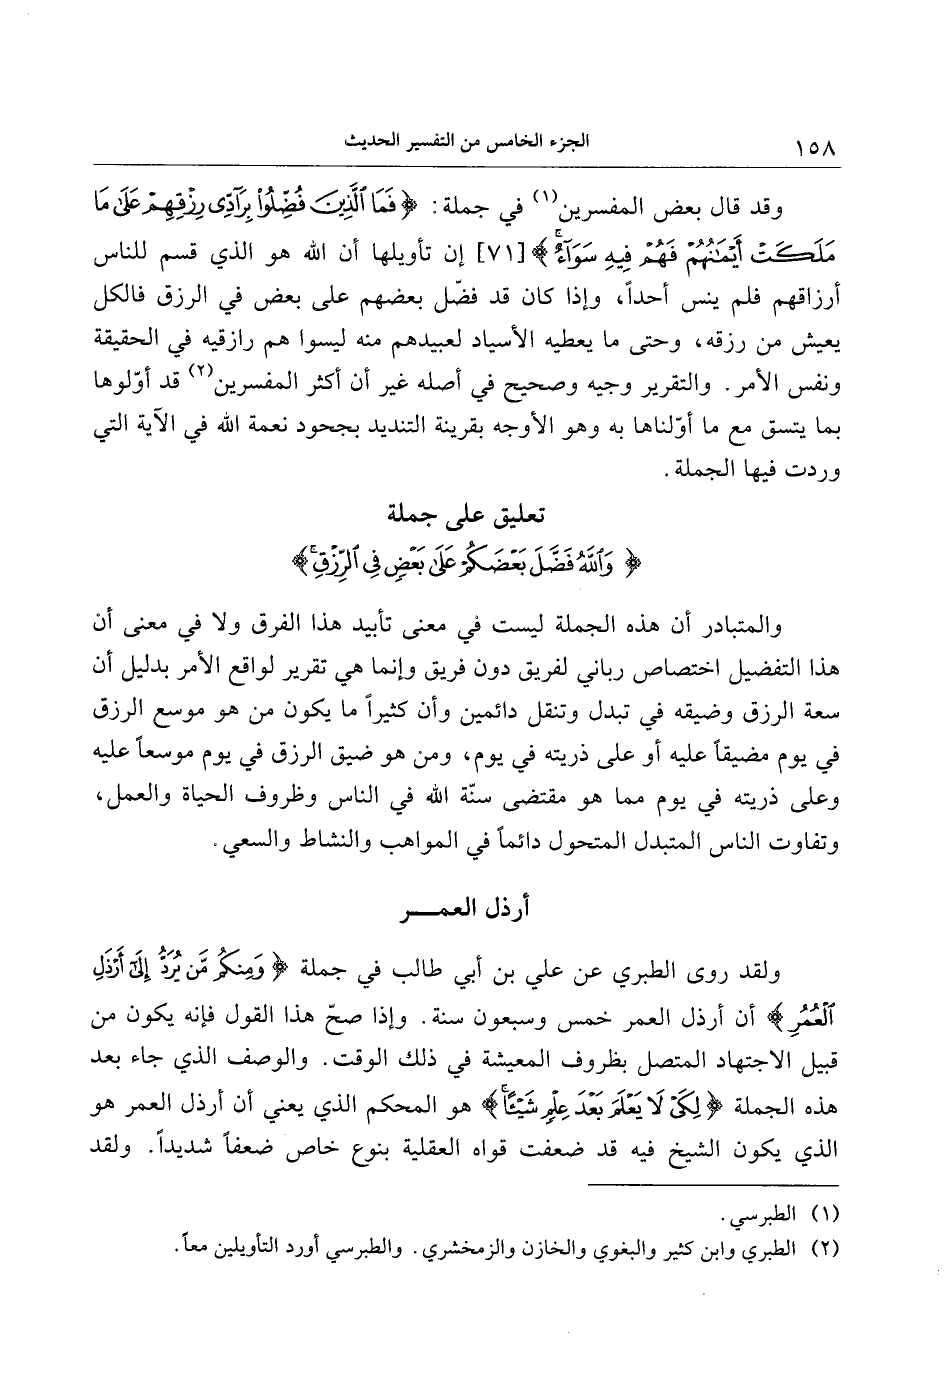 ١٥٨ الجزء الخامس من التفسير الحديث
وقد قال بعض المفسرين(١) في جملة: ﴿فَمَا ٱلَّذِينَ فُضِّلُوا۟ بِرَآدِّى رِزْقِهِمْ عَلَىٰ مَا
مَلَكَتْ أَيْمَٰنُهُمْ فَهُمْ فِيهِ سَوَآءٌ ۚ﴾ [٧١] إن تأويلها أن الله هو الذي قسم للناس
أرزاقهم فلم ينس أحداً، وإذا كان قد فضّل بعضهم على بعض في الرزق فالكل
يعيش من رزقه، وحتى ما يعطيه الأسياد لعبيدهم منه ليسوا هم رازقيه في الحقيقة
ونفس الأمر. والتقرير وجيه وصحيح في أصله غير أن أكثر المفسرين(٢) قد أوّلوها
بما يتسق مع ما أوّلناها به وهو الأوجه بقرينة التنديد بجحود نعمة الله في الآية التي
وردت فيها الجملة.
تعليق على جملة
﴿وَٱللَّهُ فَضَّلَ بَعْضَكُمْ عَلَىٰ بَعْضٍ فِى ٱلرِّزْقِ ۚ﴾
والمتبادر أن هذه الجملة ليست في معنى تأبيد هذا الفرق ولا في معنى أن
هذا التفضيل اختصاص رباني لفريق دون فريق وإنما هي تقرير لواقع الأمر بدليل أن
سعة الرزق وضيقه في تبدل وتنقل دائمين وأن كثيراً ما يكون من هو موسع الرزق
في يوم مضيقاً عليه أو على ذريته في يوم، ومن هو ضيق الرزق في يوم موسعاً عليه
وعلى ذريته في يوم مما هو مقتضى سنّة الله في الناس وظروف الحياة والعمل،
وتفاوت الناس المتبدل المتحول دائماً في المواهب والنشاط والسعي.
أرذل العمـــر
ولقد روى الطبري عن علي بن أبي طالب في جملة ﴿وَمِنكُم مَّن يُرَدُّ إِلَىٰٓ أَرْذَلِ
ٱلْعُمُرِ﴾ أن أرذل العمر خمس وسبعون سنة. وإذا صحّ هذا القول فإنه يكون من
قبيل الاجتهاد المتصل بظروف المعيشة في ذلك الوقت. والوصف الذي جاء بعد
هذه الجملة ﴿لِكَىْ لَا يَعْلَمَ بَعْدَ عِلْمٍ شَيْـًٔا ۚ﴾ هو المحكم الذي يعني أن أرذل العمر هو
الذي يكون الشيخ فيه قد ضعفت قواه العقلية بنوع خاص ضعفاً شديداً. ولقد
(١) الطبرسي.
(٢) الطبري وابن كثير والبغوي والخازن والزمخشري. والطبرسي أورد التأويلين معاً.